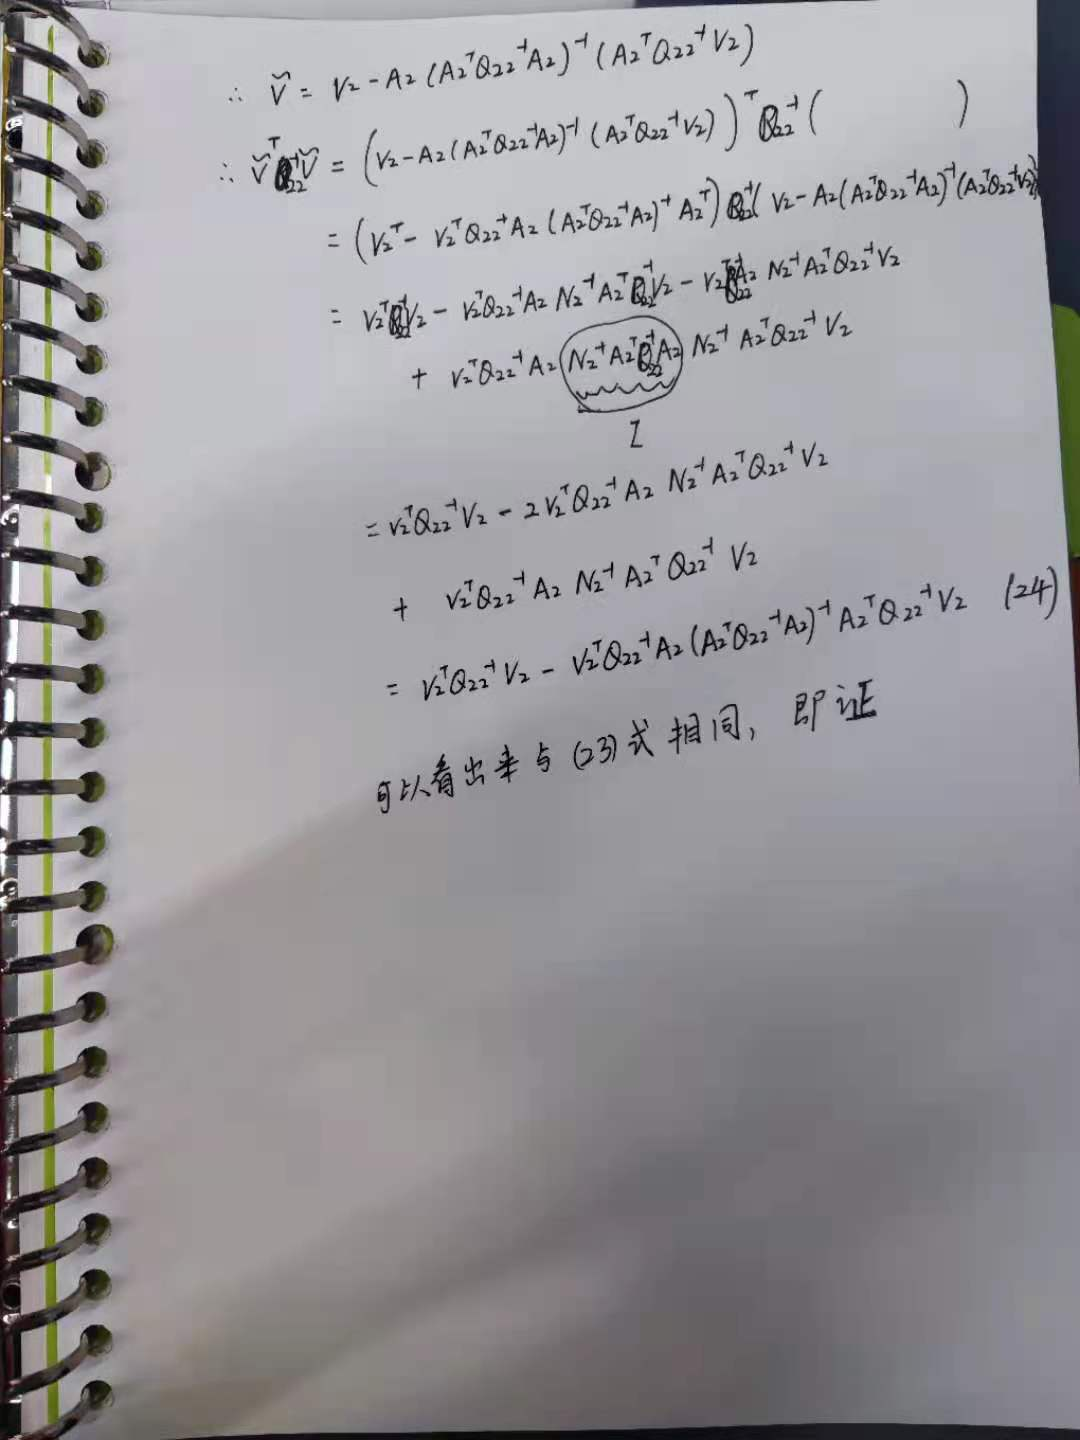 ∴ Ṽ = V₂ - A₂ (A₂ᵀQ₂₂⁻¹A₂)⁻¹ (A₂ᵀQ₂₂⁻¹V₂)
∴ ṼᵀQ₂₂⁻¹Ṽ = (V₂ - A₂(A₂ᵀQ₂₂⁻¹A₂)⁻¹ (A₂ᵀQ₂₂⁻¹V₂))ᵀ Q₂₂⁻¹ ( )
= (V₂ᵀ - V₂ᵀQ₂₂⁻¹A₂ (A₂ᵀQ₂₂⁻¹A₂)⁻¹ A₂ᵀ) Q₂₂⁻¹( V₂ - A₂(A₂ᵀQ₂₂⁻¹A₂)⁻¹(A₂ᵀQ₂₂⁻¹V₂)
= V₂ᵀQ₂₂⁻¹V₂ - V₂ᵀQ₂₂⁻¹A₂ N₂⁻¹A₂ᵀQ₂₂⁻¹V₂ - V₂ᵀQ₂₂⁻¹A₂ N₂⁻¹A₂ᵀQ₂₂⁻¹V₂
+ V₂ᵀQ₂₂⁻¹A₂ N₂⁻¹A₂ᵀQ₂₂⁻¹A₂ N₂⁻¹ A₂ᵀQ₂₂⁻¹ V₂
I
= V₂ᵀQ₂₂⁻¹V₂ - 2V₂ᵀQ₂₂⁻¹A₂ N₂⁻¹A₂ᵀQ₂₂⁻¹V₂
+ V₂ᵀQ₂₂⁻¹A₂ N₂⁻¹A₂ᵀQ₂₂⁻¹ V₂
= V₂ᵀQ₂₂⁻¹V₂ - V₂ᵀQ₂₂⁻¹A₂(A₂ᵀQ₂₂⁻¹A₂)⁻¹A₂ᵀQ₂₂⁻¹V₂ (24)
可以看出来与(23)式相同, 即证